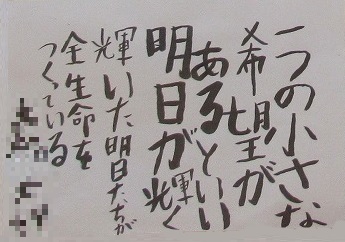 一つの小さな
希望が
あるといい
明日が輝く
輝いた明日たちが
全生命を
つくっている